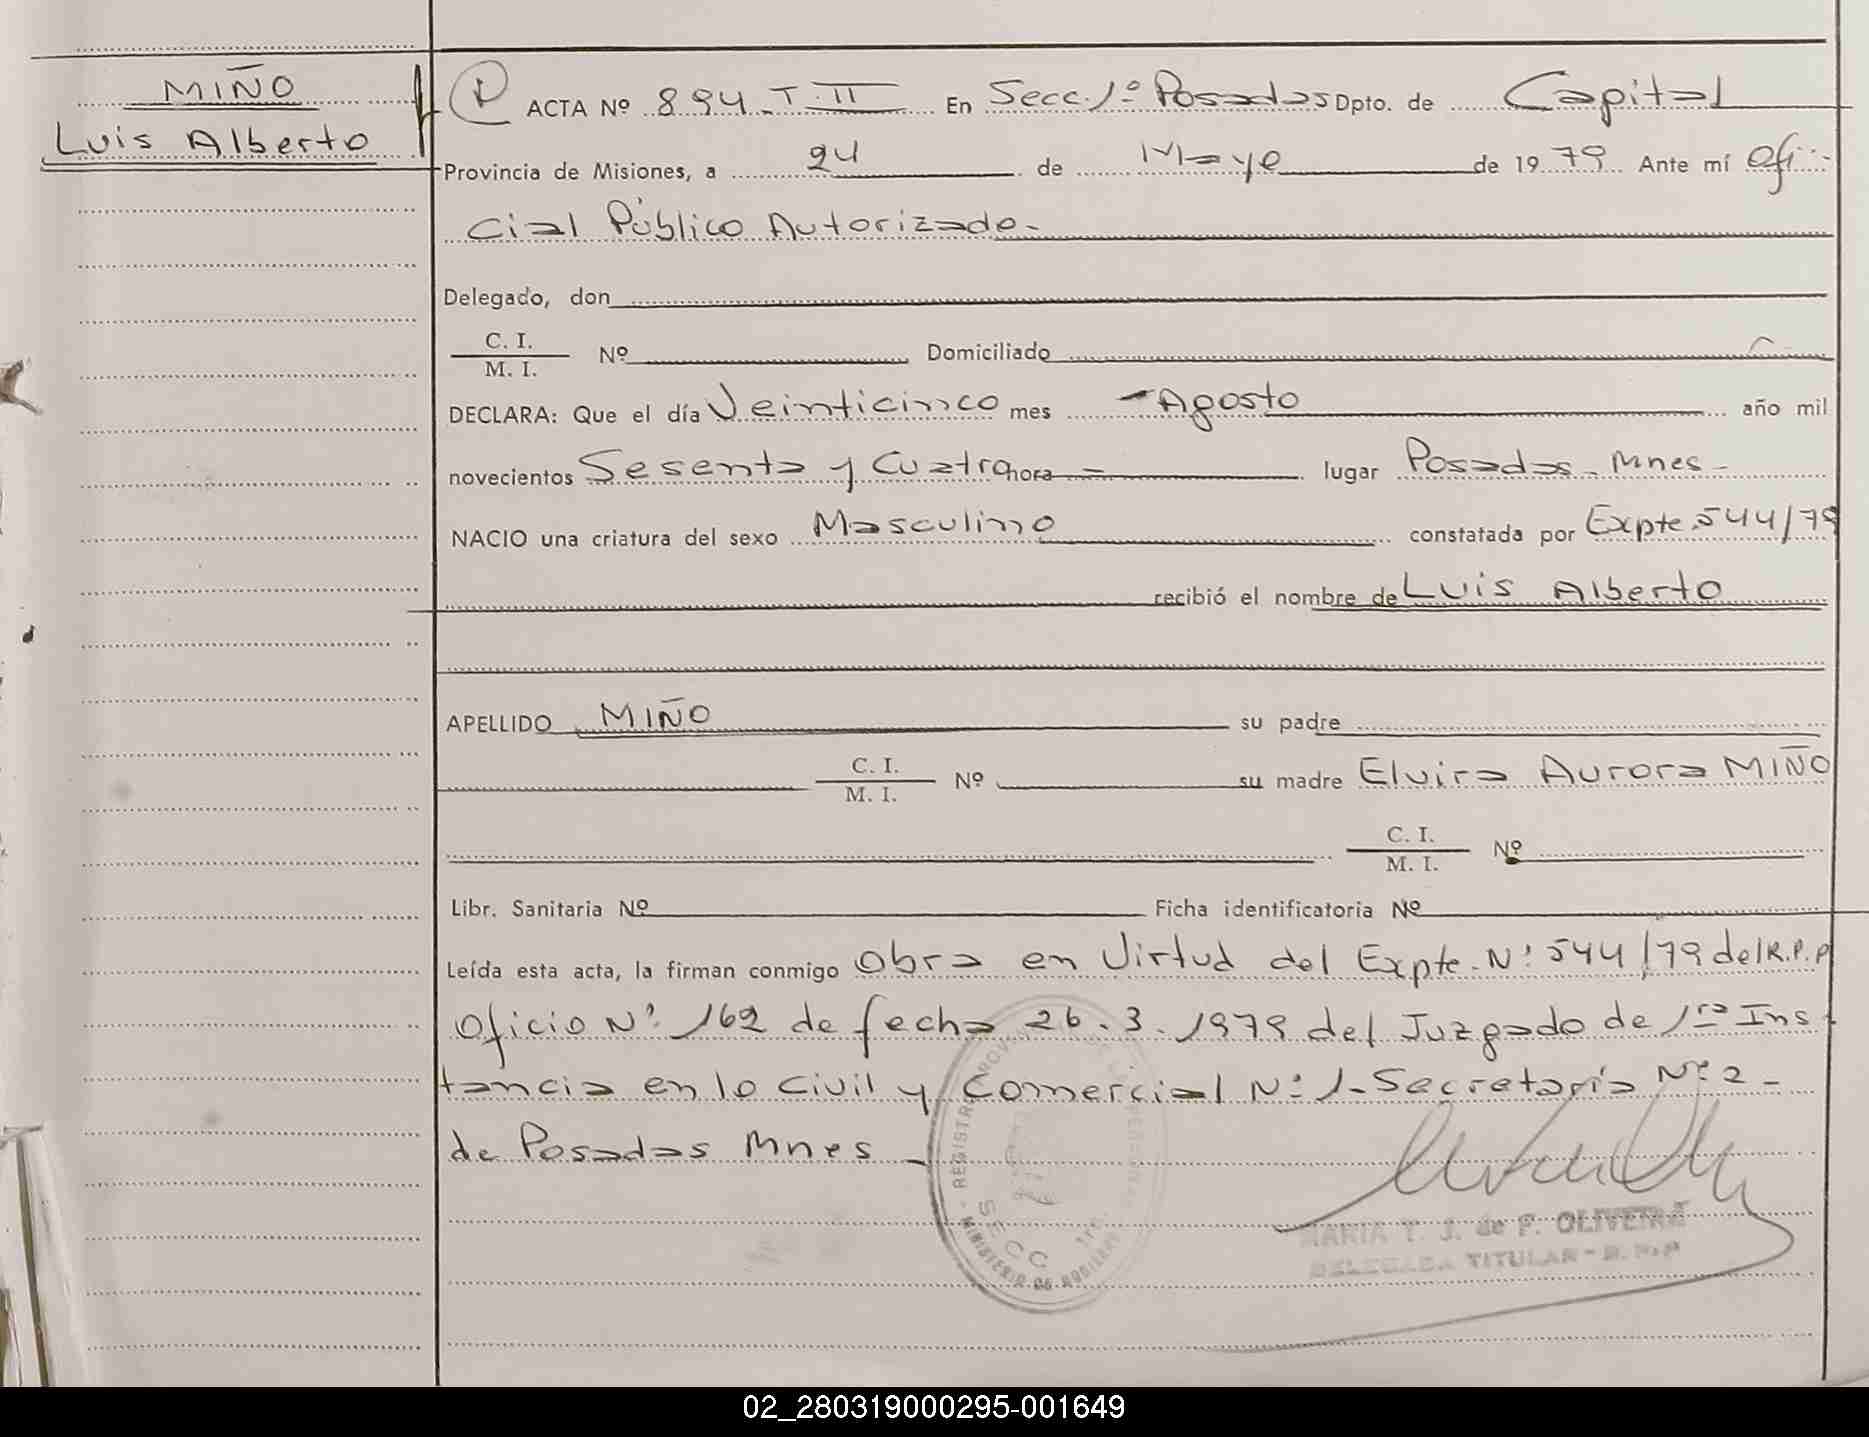 MIÑO
Luis Alberto
ACTA Nº 894 T II En Secc. 1º Posadas Dpto. de Capital
Provincia de Misiones, a 24 de Mayo de 1979 Ante mí Ofi-
cial Público Autorizado-
Delegado, don
C. I.
M. I.
Nº Domiciliado
DECLARA: Que el día Veinticinco mes Agosto año mil
novecientos Sesenta y Cuatro hora lugar Posadas - Mnes -
NACIO una criatura del sexo Masculino constatada por Expte. 544/79
recibió el nombre de Luis Alberto
APELLIDO MIÑO su padre
C. I.
M. I.
Nº su madre Elvira Aurora MIÑO
C. I.
M. I.
Nº
Libr. Sanitaria Nº Ficha identificatoria Nº
Leída esta acta, la firman conmigo Obra en Virtud del Expte. Nº 544/79 del R.P.P
Oficio Nº 162 de fecha 26.3.1979 del Juzgado de 1ra Ins-
tancia en lo Civil y Comercial Nº 1- Secretaría Nº 2 -
de Posadas Mnes -
MARIA T. J. de F. OLIVEIRA
DELEGADA TITULAR - R.P.P
REGISTRO PROV. DE
MINISTERIO DE GOBIERNO
SECC. 1ra.
02_280319000295-001649